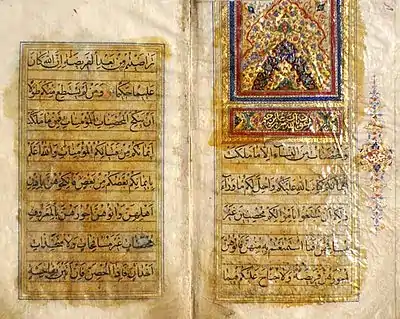 والمحصنات من النساء الا ما ملكت
ايمانكم كتاب الله عليكم واحل لكم ما وراء
ذلكم ان تبتغوا باموالكم محصنين غير
مسافحين فما استمتعتم به منهن فاتوهن
اجورهن فريضة ولا جناح عليكم فيما
تراضيتم به من بعد الفريضة ان الله كان
عليما حكيما ومن لم يستطع منكم طولا
ان ينكح المحصنات المؤمنات فمن ما ملكت
ايمانكم من فتياتكم المؤمنات والله اعلم
بايمانكم بعضكم من بعض فانكحوهن باذن
اهلهن واتوهن اجورهن بالمعروف
محصنات غير مسافحات ولا متخذات
اخدان فاذا احصن فان اتين بفاحشة